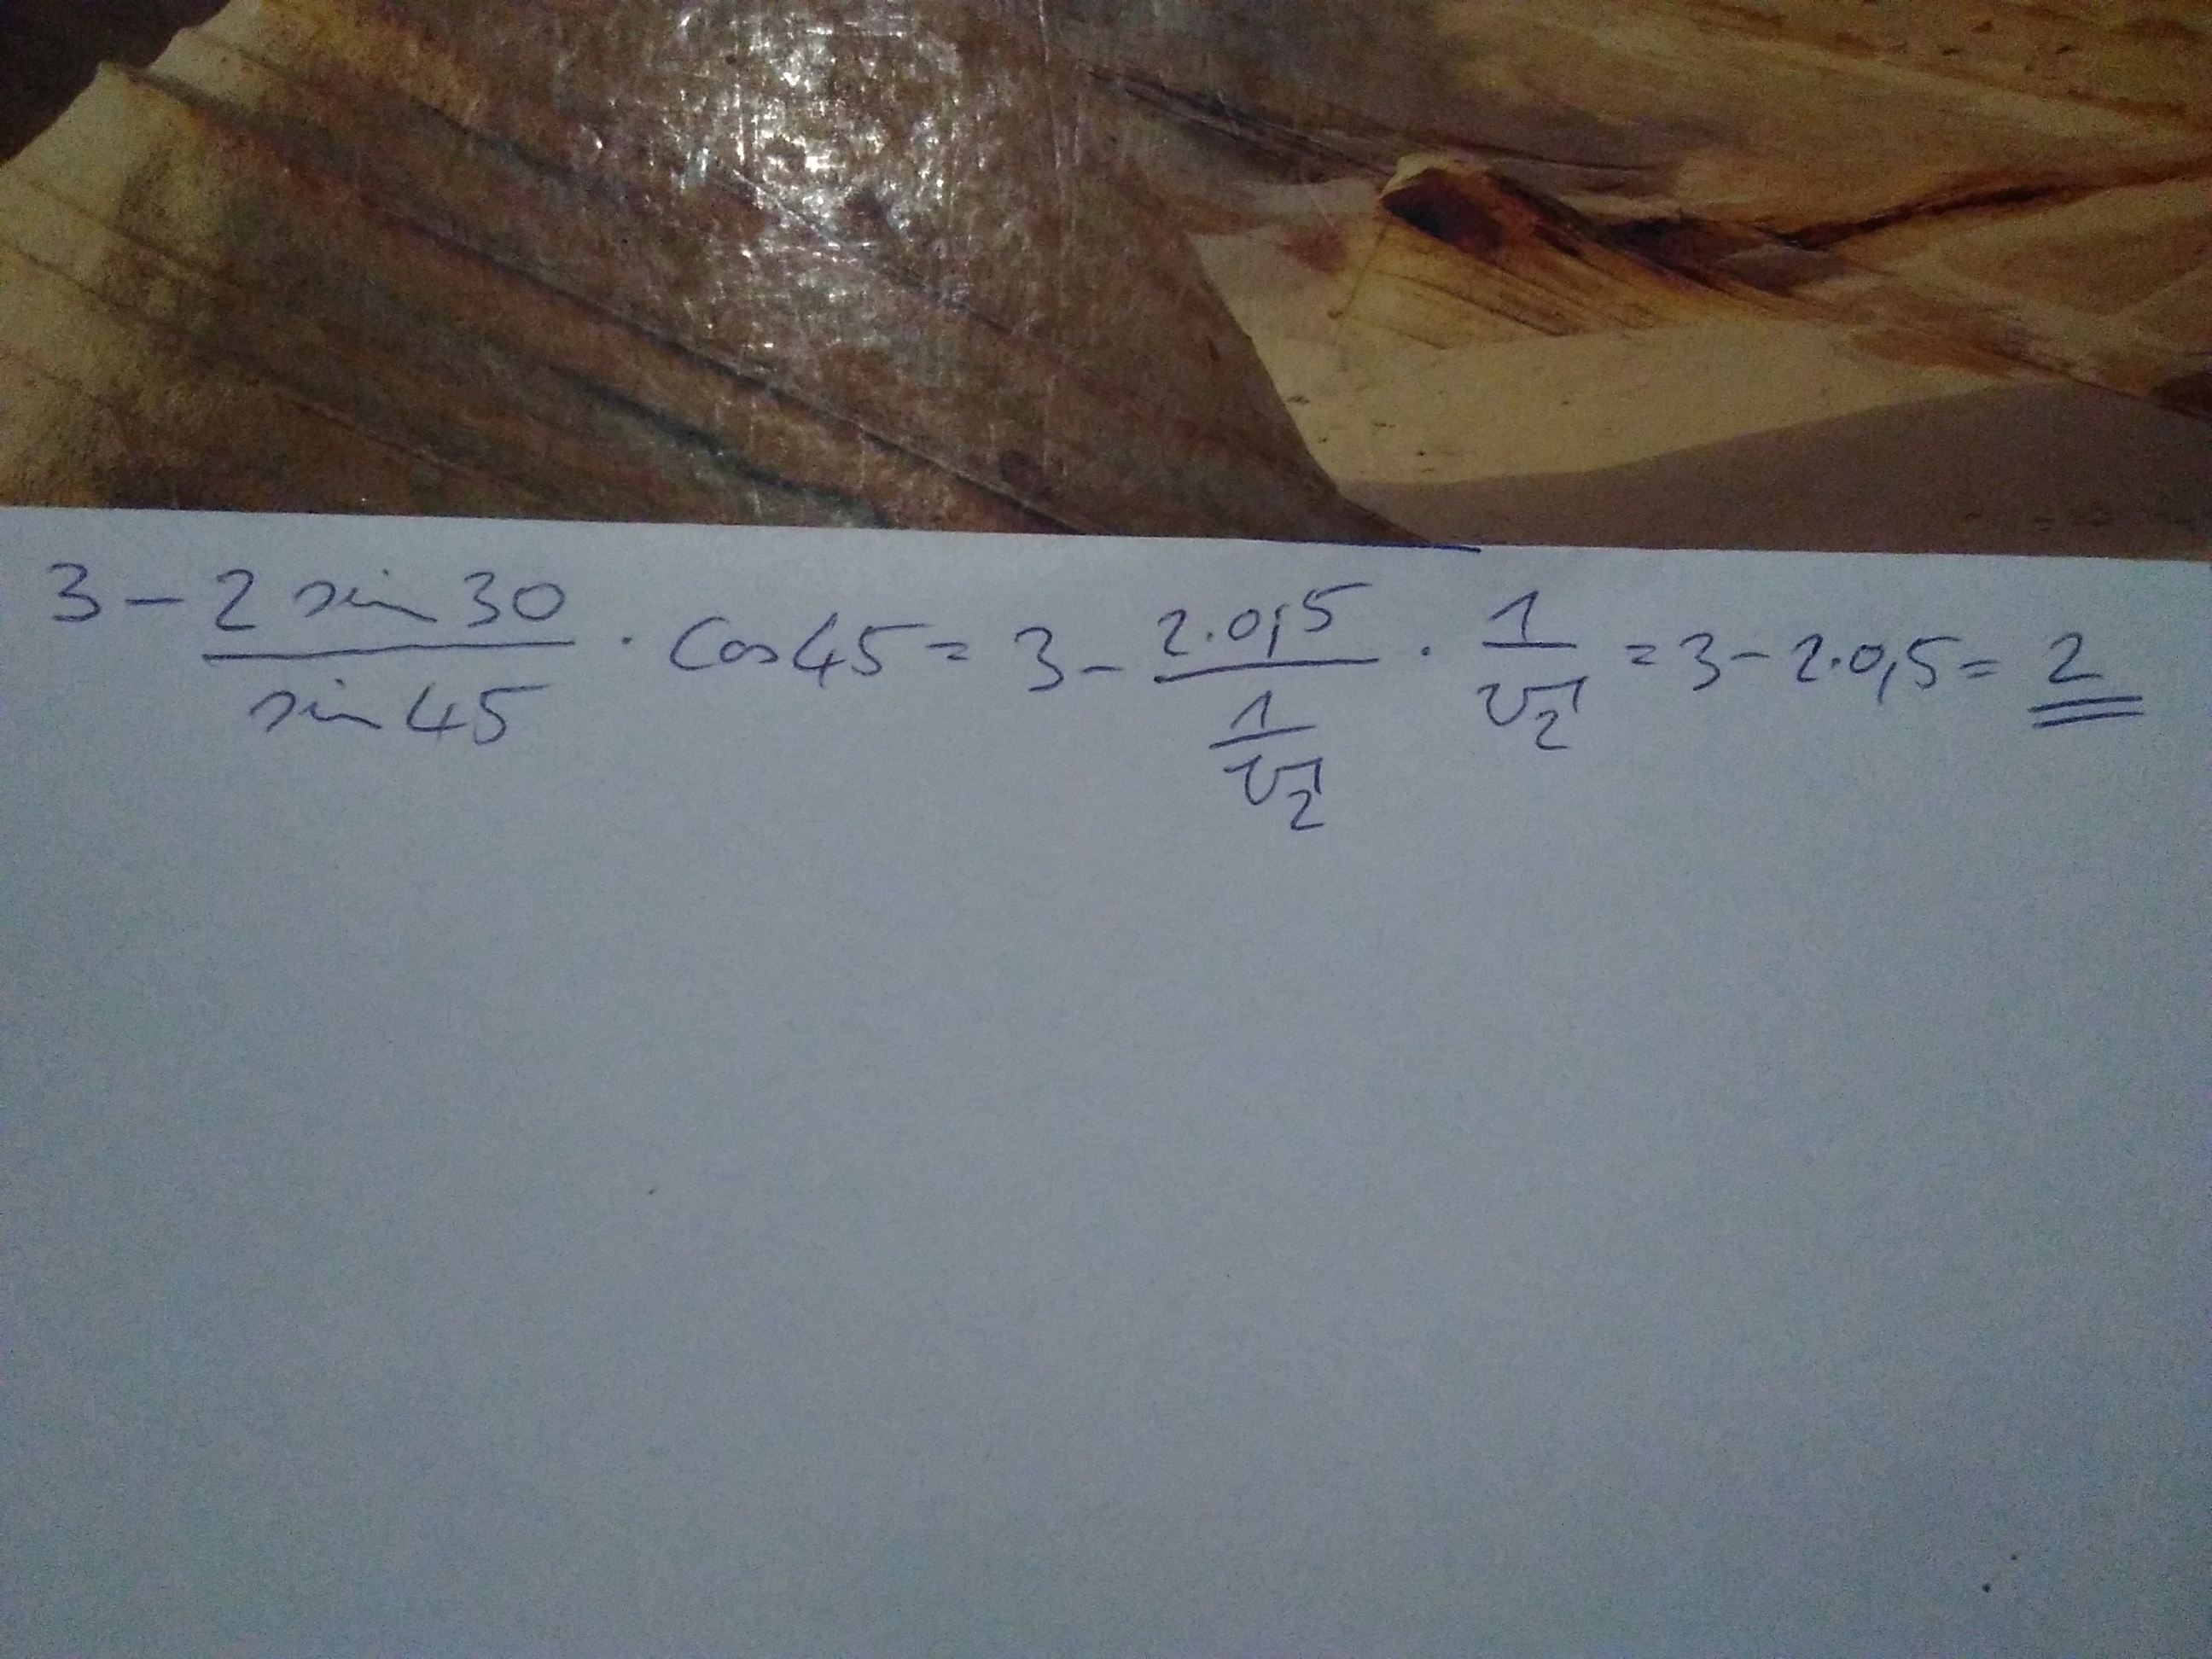 3 - \frac{2 sin 30}{sin 45} · cos 45 = 3 - \frac{2·0,5}{\frac{1}{\sqrt{2}}} · \frac{1}{\sqrt{2}} = 3 - 2·0,5 = 2